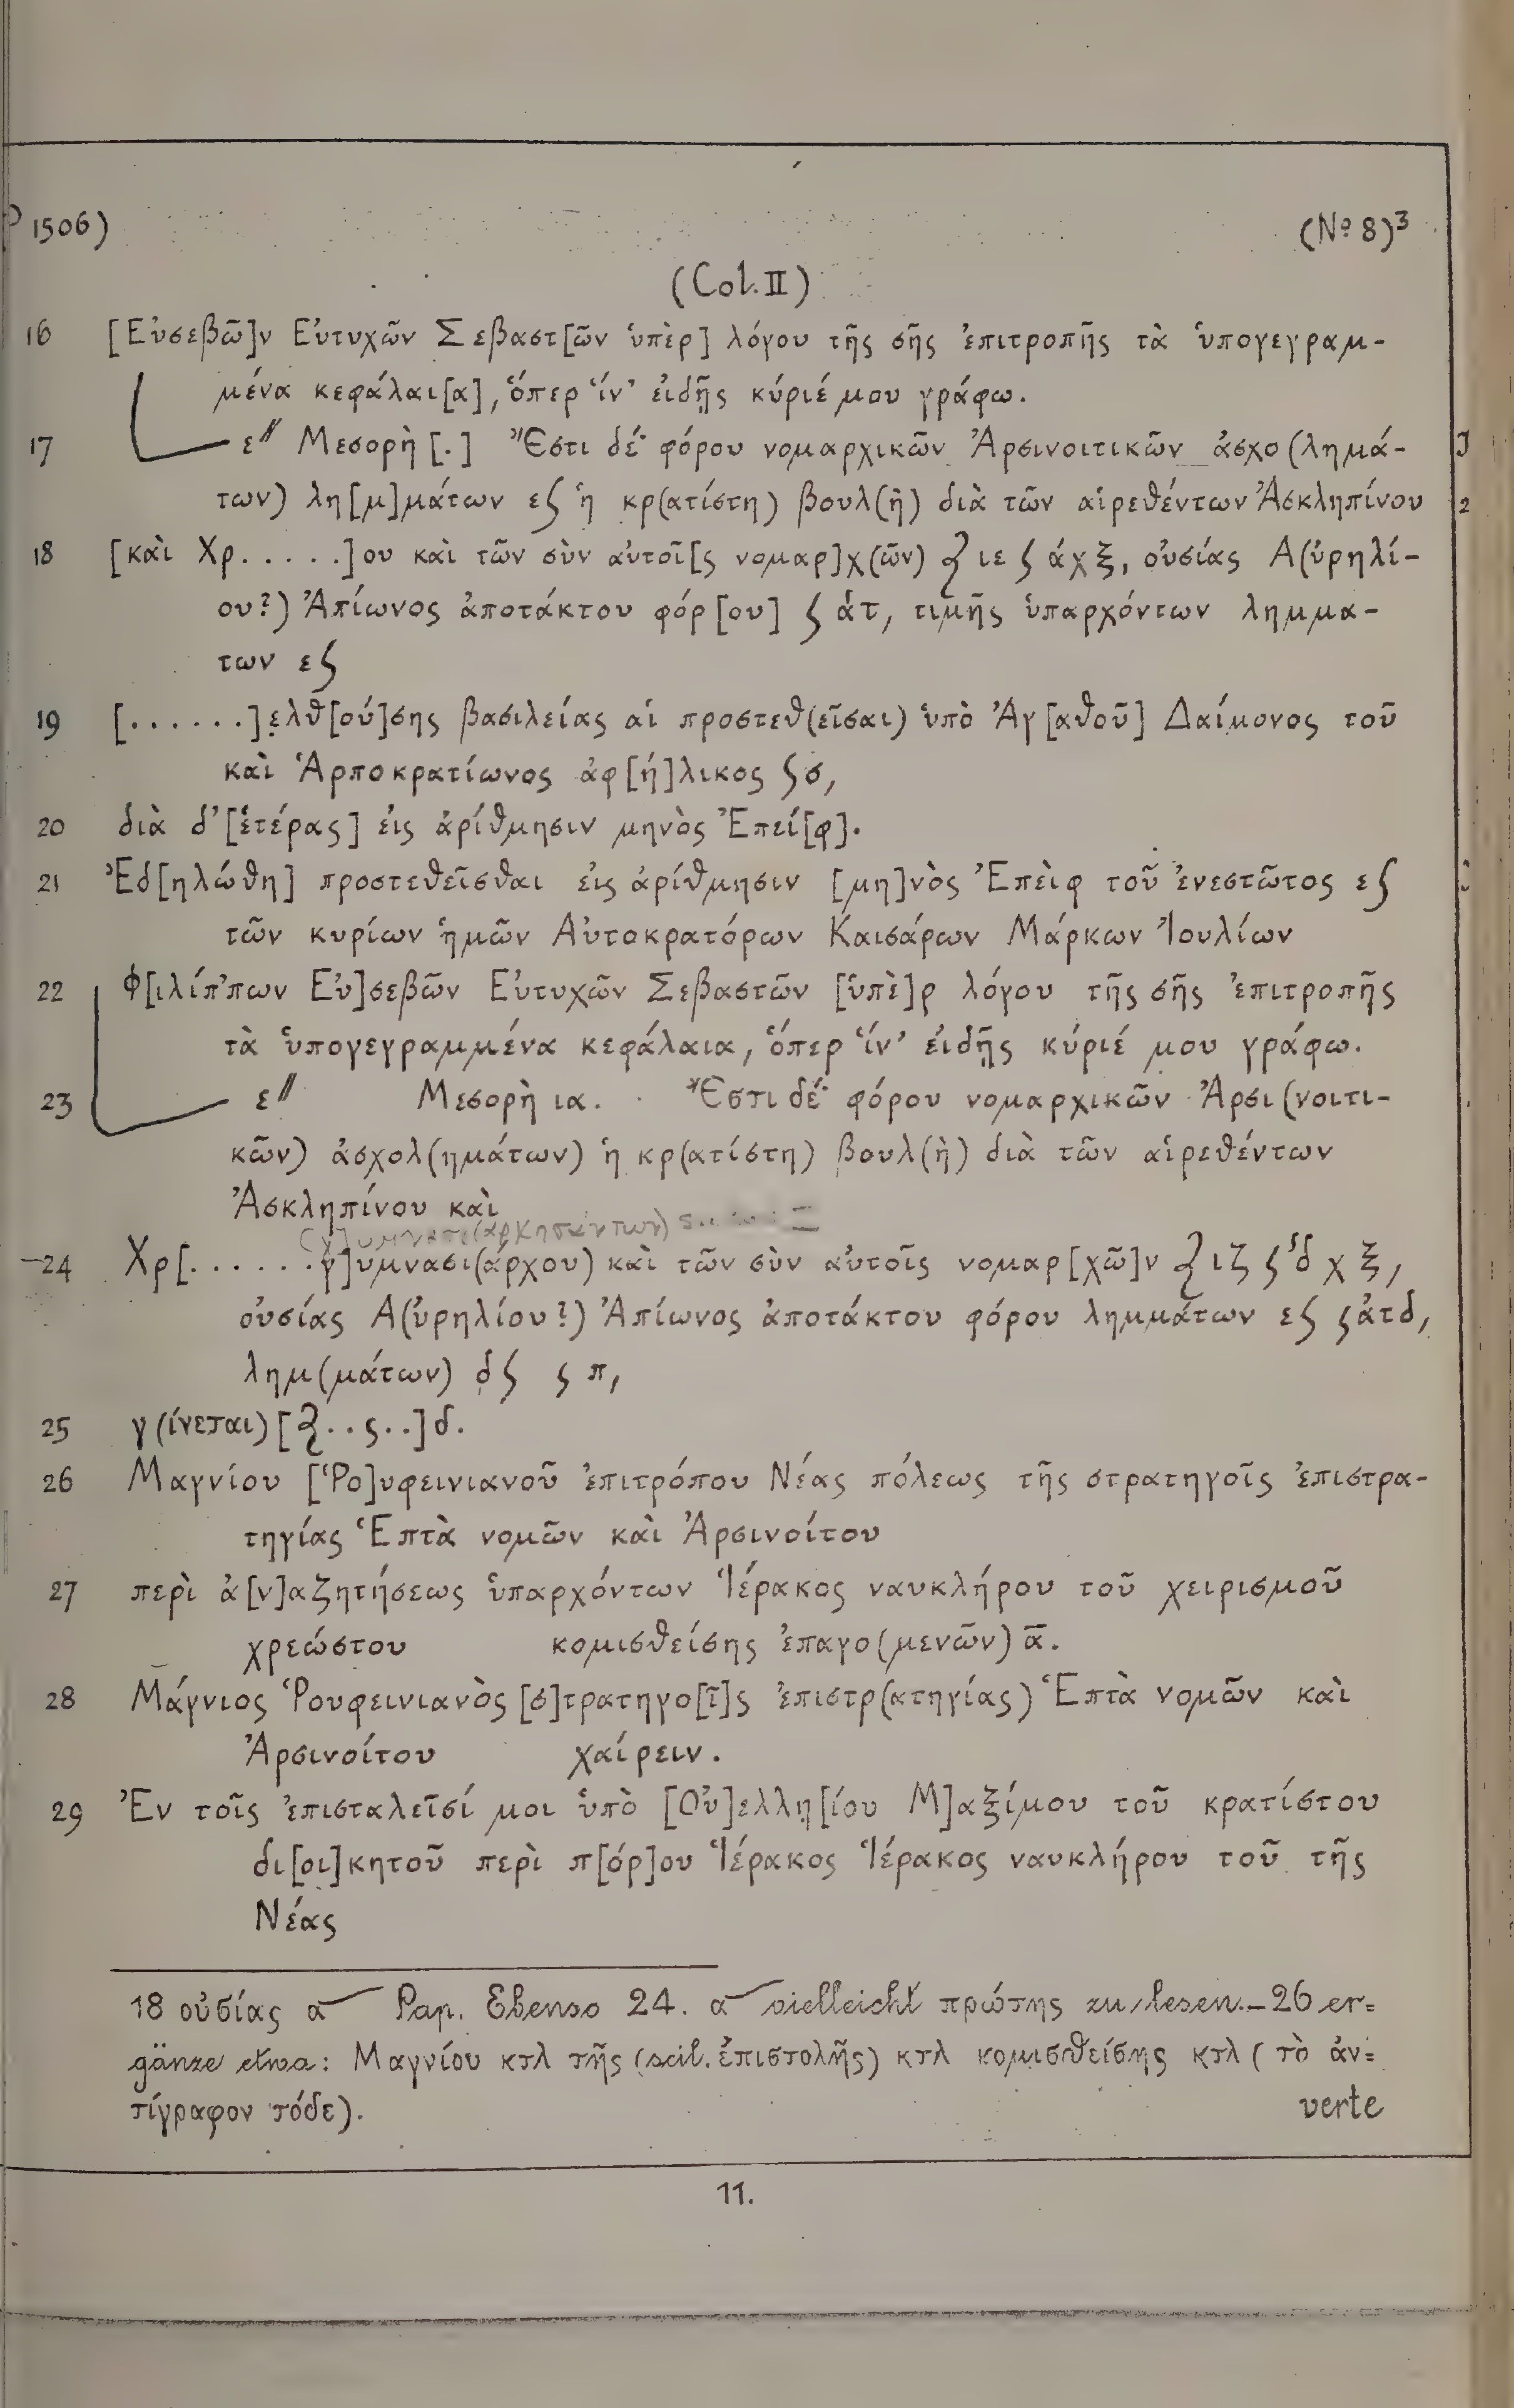 P 1506) (Nº 8)³
(Col. II)
16 [Εὐσεβῶ]ν Εὐτυχῶν Σεβαστ[ῶν ὑπὲρ] λόγου τῆς σῆς ἐπιτροπῆς τὰ ὑπογεγραμ-
μένα κεφάλαι[α], ὅπερ ἵν' εἰδῇς κύριέ μου γράφω.
17 ε// Μεσορὴ [.] Ἔστι δέ· φόρου νομαρχικῶν Ἀρσινοιτικῶν ἀσχο(λημά-
των) λη[μ]μάτων εʃ ἡ κρ(ατίστη) βουλ(ὴ) διὰ τῶν αἱρεθέντων Ἀσκληπίνου
18 [καὶ Χρ. . . . .]ου καὶ τῶν σὺν αὐτοῖ[ς νομαρ]χ(ῶν) ⟅ ιε ʃ άχξ, οὐσίας Α(ὐρηλί-
ου?) Ἀπίωνος ἀποτάκτου φόρ[ου] ʃ άτ, τιμῆς ὑπαρχόντων λημμα-
των εʃ
19 [. . . . . .]ελθ[ού]σης βασιλείας αἱ προστεθ(εῖσαι) ὑπὸ Ἀγ[αθοῦ] Δαίμονος τοῦ
καὶ Ἁρποκρατίωνος ἀφ[ή]λικος ʃσ,
20 διὰ δ'[ἑτέρας] εἰς ἀρίθμησιν μηνὸς Ἐπεί[φ].
21 Ἐδ[ηλώθη] προστεθεῖσθαι εἰς ἀρίθμησιν [μη]νὸς Ἐπεὶφ τοῦ ἐνεστῶτος εʃ
τῶν κυρίων ἡμῶν Αὐτοκρατόρων Καισάρων Μάρκων Ἰουλίων
22 Φ[ιλίπ'πων Εὐ]σεβῶν Εὐτυχῶν Σεβαστῶν [ὑπὲ]ρ λόγου τῆς σῆς ἐπιτροπῆς
τὰ ὑπογεγραμμένα κεφάλαια, ὅπερ ἵν' εἰδῇς κύριέ μου γράφω.
23 ε// Μεσορὴ ια. Ἔστι δέ· φόρου νομαρχικῶν Ἀρσι(νοιτι-
κῶν) ἀσχολ(ημάτων) ἡ κρ(ατίστη) βουλ(ὴ) διὰ τῶν αἱρεθέντων
Ἀσκληπίνου καὶ
24 Χρ[. . . . . . γ]υμνασι(άρχου) καὶ τῶν σὺν αὐτοῖς νομαρ[χῶ]ν ⟅ ιζ ʃ 'δ χ ξ,
οὐσίας Α(ὐρηλίου?) Ἀπίωνος ἀποτάκτου φόρου λημμάτων εʃ ʃάτδ,
λημ(μάτων) δʃ ʃ π,
25 γ(ίνεται) [⟅ . . ʃ . .]δ.
26 Μαγνίου [Ῥο]υφεινιανοῦ ἐπιτρόπου Νέας πόλεως τῆς στρατηγοῖς ἐπιστρα-
τηγίας Ἑπτὰ νομῶν καὶ Ἀρσινοίτου
27 περὶ ἀ[ν]αζητήσεως ὑπαρχόντων Ἱέρακος ναυκλήρου τοῦ χειρισμοῦ
χρεώστου κομισθείσης ἐπαγο(μενῶν) ᾱ.
28 Μάγνιος Ῥουφεινιανὸς [σ]τρατηγο[ῖ]ς ἐπιστρ(ατηγίας) Ἑπτὰ νομῶν καὶ
Ἀρσινοίτου χαίρειν.
29 Ἐν τοῖς ἐπισταλεῖσί μοι ὑπὸ [Οὐ]ελλη[ίου Μ]αξίμου τοῦ κρατίστου
δι[οι]κητοῦ περὶ π[όρ]ου Ἱέρακος Ἱέρακος ναυκλήρου τοῦ τῆς
Νέας
18 οὐσίας α Pap. Ebenso 24. α vielleicht πρώτης zu lesen. – 26 er=
gänze etwa: Μαγνίου κτλ τῆς (scil. ἐπιστολῆς) κτλ κομισθείσης κτλ (τὸ ἀν=
τίγραφον τόδε). verte
11.